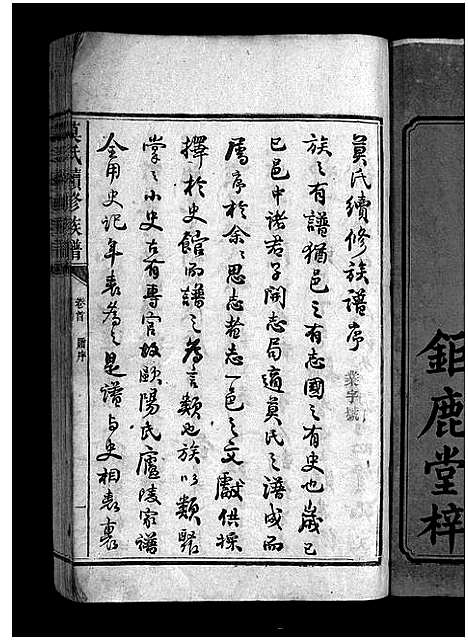 鉅鹿堂梓
莫氏續修族譜序
業字號
族之有譜猶邑之有志國之有史也歲己
巳邑中諸君子開志局適莫氏之譜成而
屬序於余〻思志者志一邑之文獻供採
擇於史館而譜之為言類也族以類聚
掌之小史古有專官故歐陽氏廬陵家譜
全用史記年表為之是譜與史相表裏
莫氏續修族譜
卷首
序
一